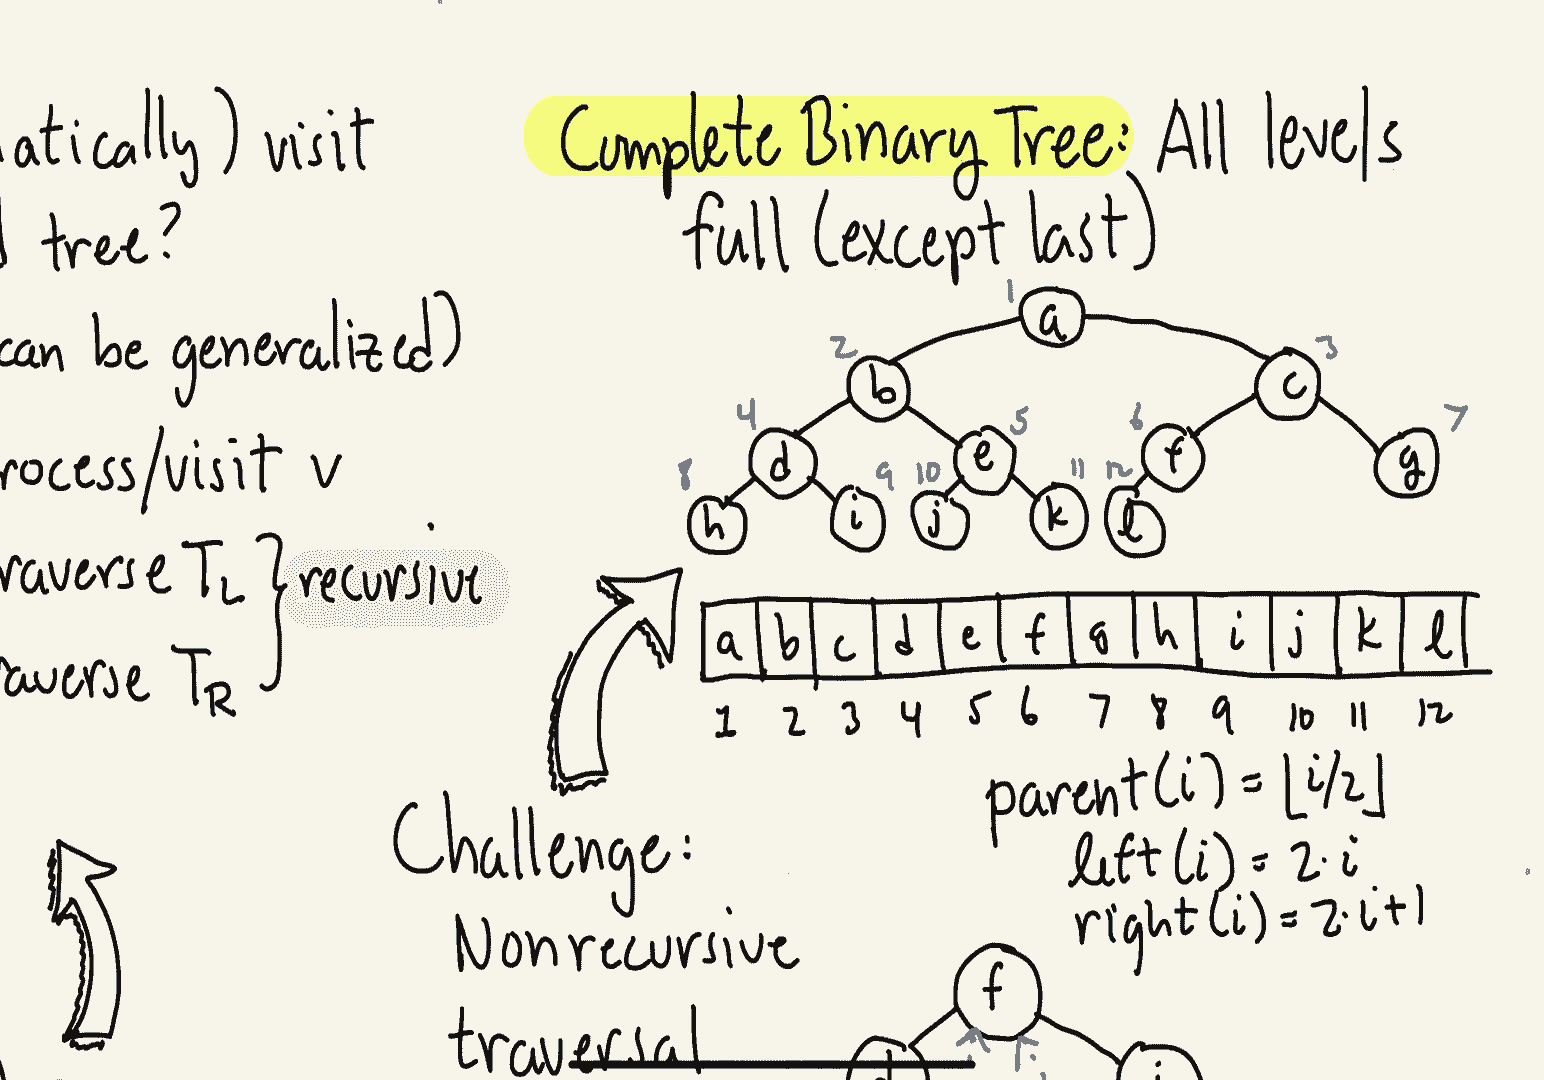 atically) visit
tree?
can be generalized)
rocess/visit v
raverse T_L } recursive
raverse T_R
Complete Binary Tree: All levels
full (except last)
1
a
2 3
b c
4 5 6 7
d e f g
8 9 10 11 12
h i j k l
a b c d e f g h i j k l
1 2 3 4 5 6 7 8 9 10 11 12
parent(i) = ⌊i/2⌋
left(i) = 2·i
right(i) = 2·i+1
Challenge:
Nonrecursive
traversal
f